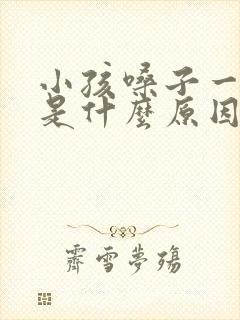 小孩嗓子一
是什麼原因
霽雪夢殤